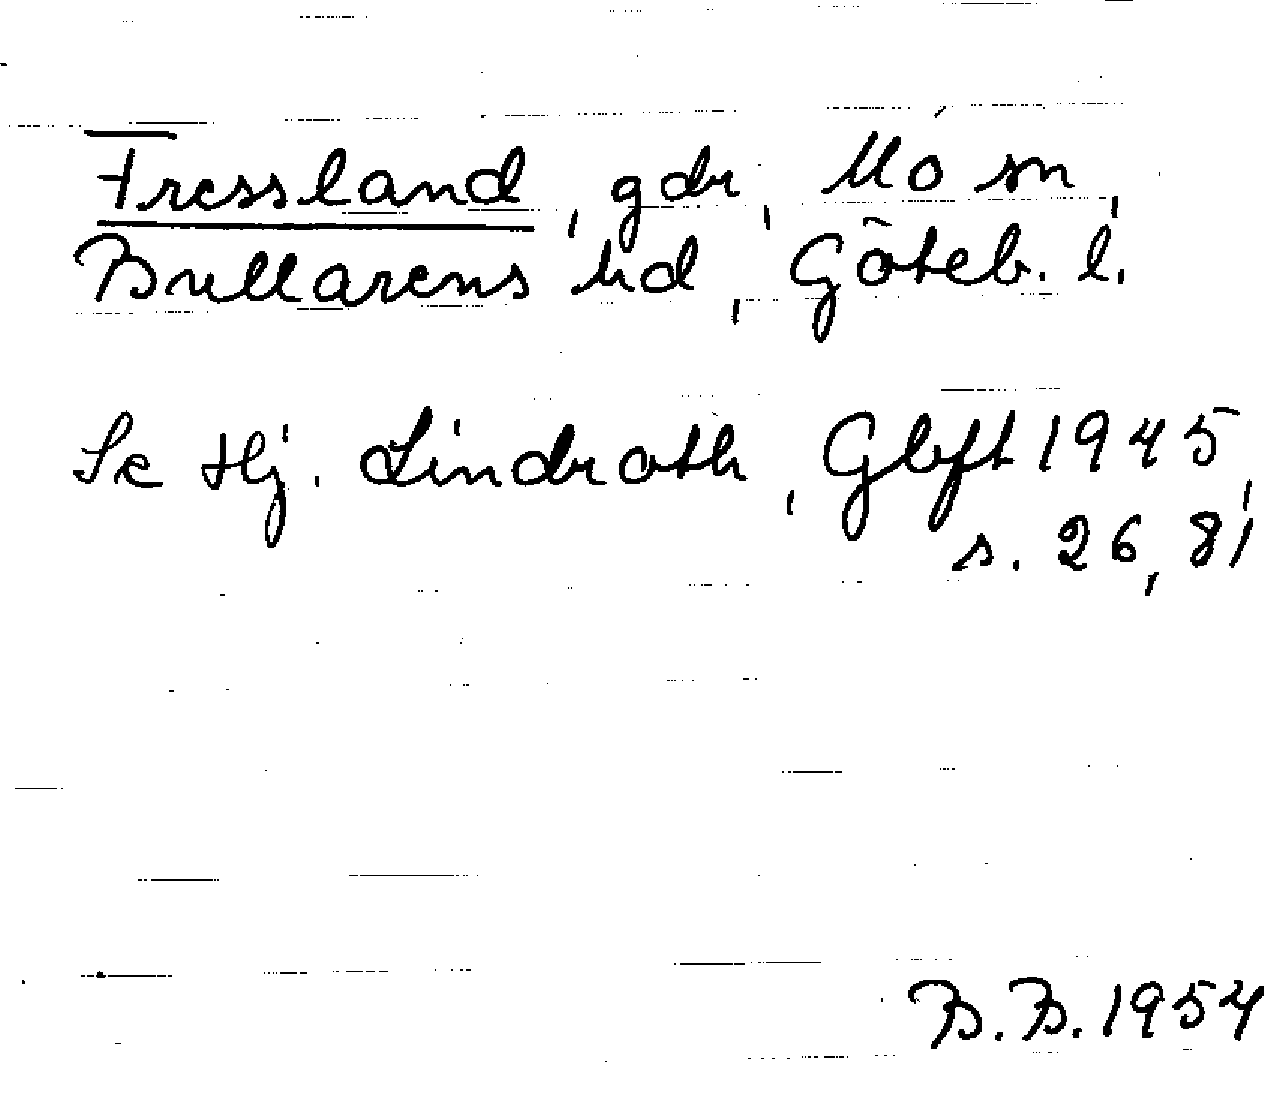 Fressland, gdr, Mo sn,
Bullarens hd, Göteb. l.
Se Hj. Lindroth, Gbft 1945,
s. 26, 81
B. B. 1954